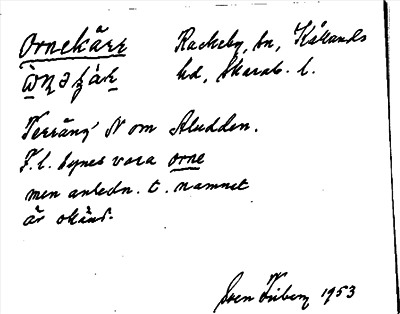 Ornekärr Rackeby, sn, Kållands
hd, Skarab. l.
Terräng N om Aludden.
F.l. synes vara orne
men anledn. t. namnet
är okänd.
Sven 1953